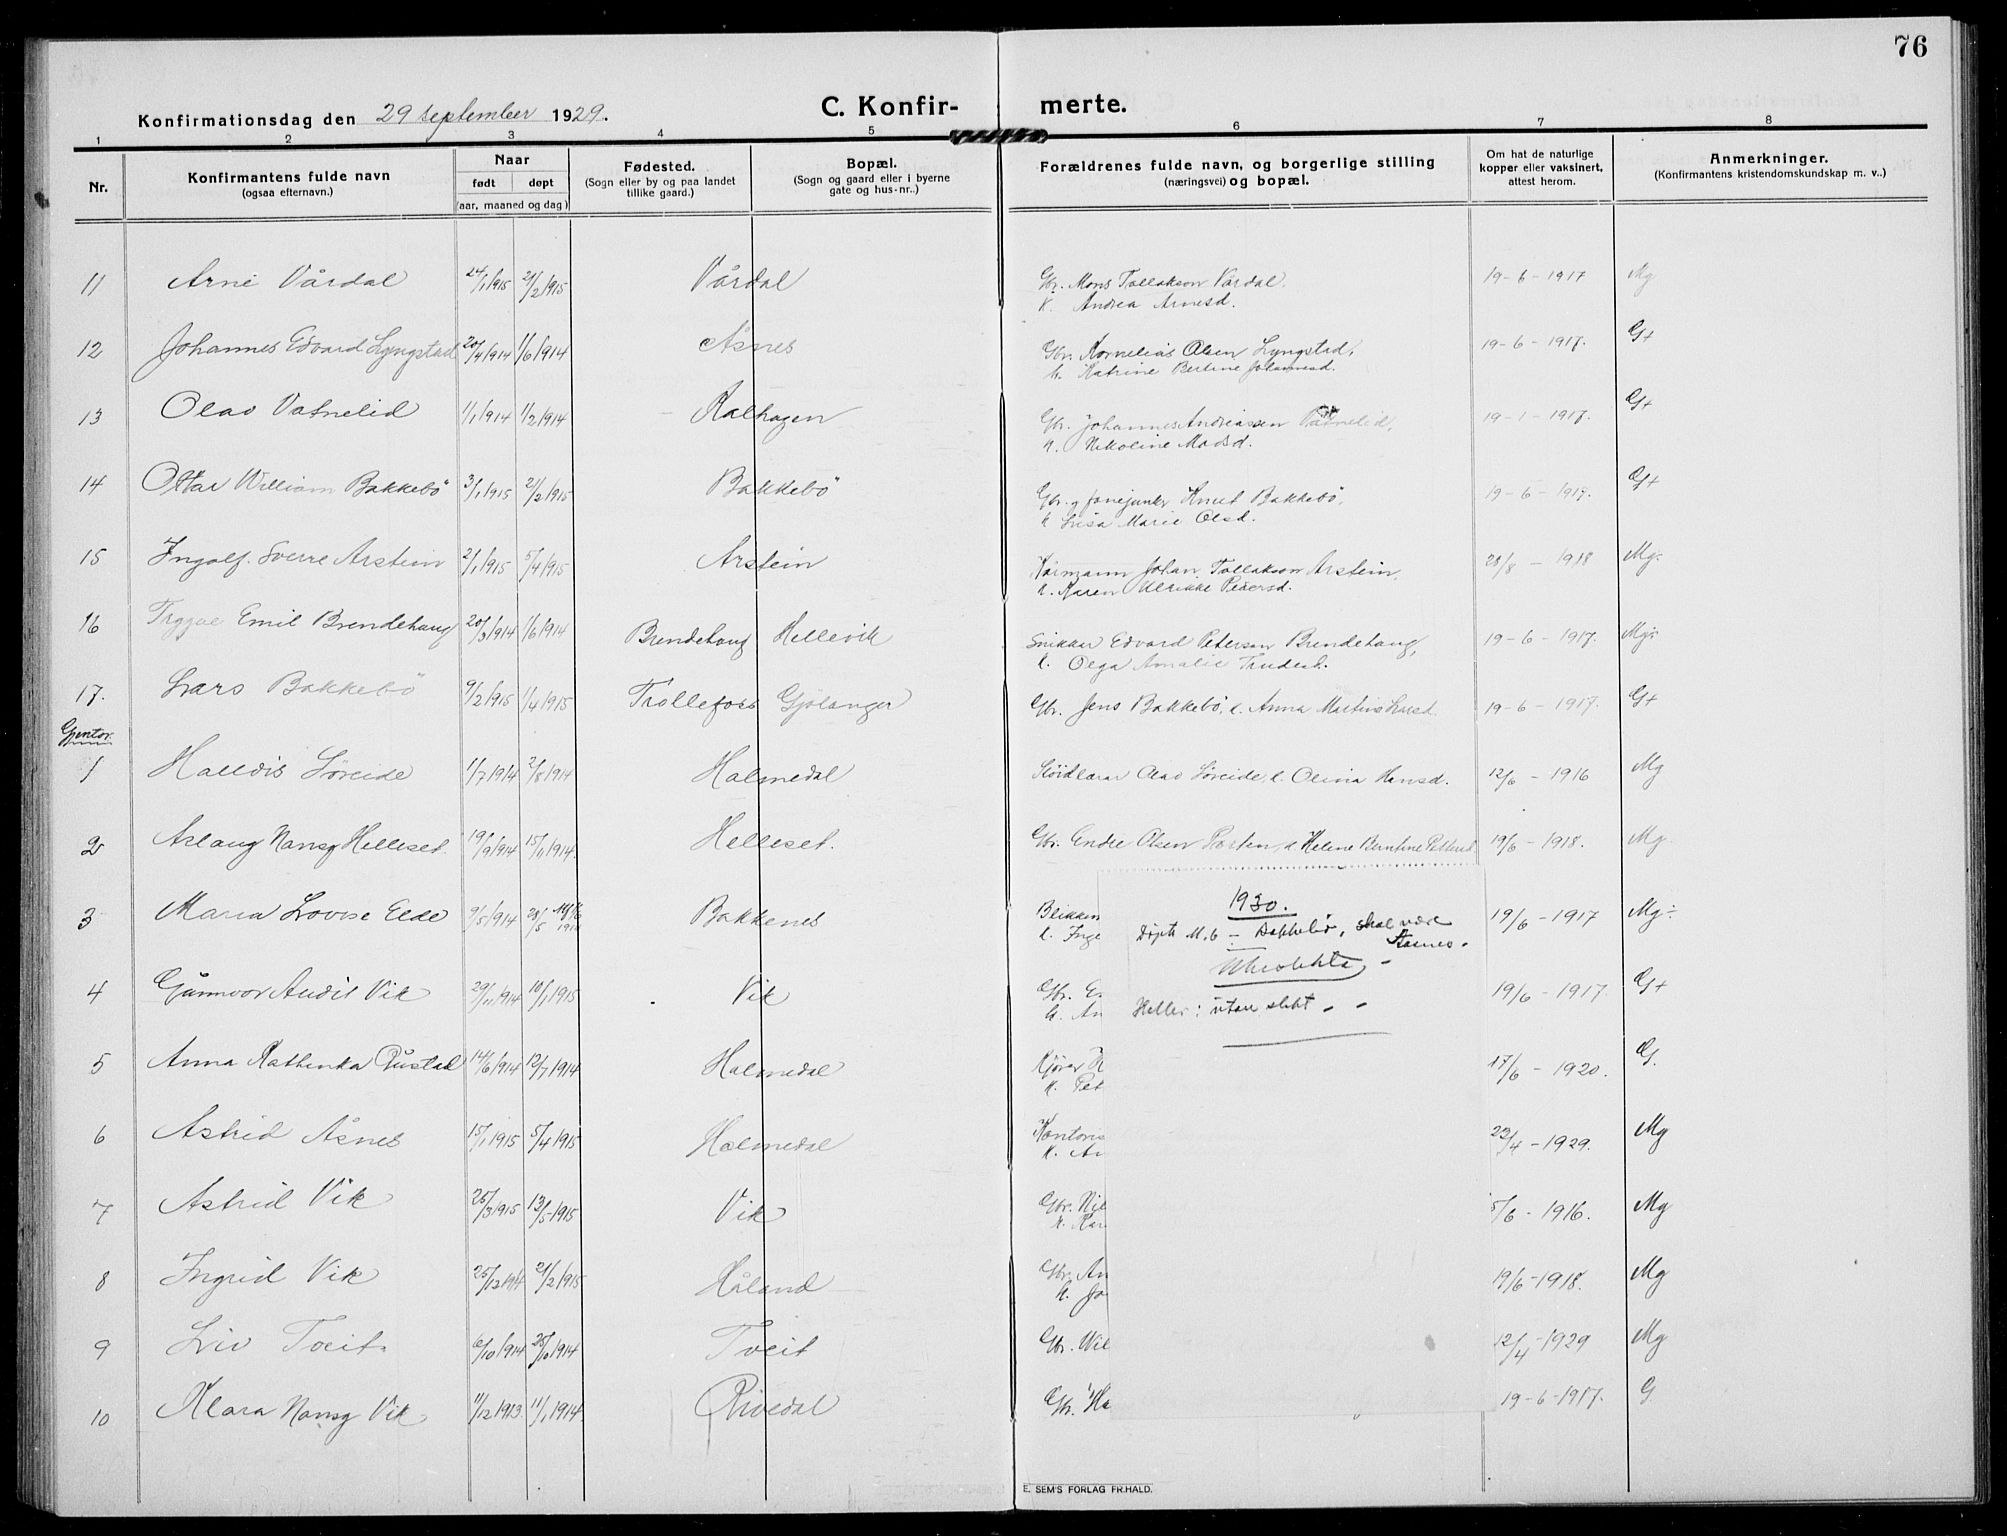 76
Konfirmationsdag den 29 september 1929.
C. Konfir-merte.
1 2 3 4 5 6 7 8
Nr.
Konfirmantens fulde navn
(ogsaa efternavn.)
Naar
født døpt
(aar, maaned og dag)
Fødested.
(Sogn eller by og paa landet
tillike gaard.)
Bopæl.
(Sogn og gaard eller i byerne
gate og hus-nr..)
Forældrenes fulde navn, og borgerlige stilling
(næringsvei) og bopæl.
Om hat de naturlige
kopper eller vaksinert,
attest herom.
Anmerkninger.
(Konfirmantens kristendomskundskap m. v..)
11 Arne Vårdal 24/1 1915 21/2 1915 Vårdal Gbr. Mons Tollakson Vårdal. 19-6-1917 Mg
k. Andrea Arnesd.
12 Johannes Edvard Lyngstad 20/4 1914 1/6 1914 Åsnes Gbr. Kornelius Olsen Lyngstad, 19-6-1917. G+
k. Katrine Bertine Johannesd.
13 Olav Vatnelid 1/1 1914 1/2 1914 Kalhagen Gbr. Johannes Andreassen Vatnelid, 19-1-1917. G+
k. Nikoline Madsd.
14 Ottar William Bakkebö 3/1 1915 21/2 1915 Bakkebö Gbr. og fanejunker Knut Bakkebö, 19-6-1917. G+
k. Lisa Marie Olsd.
15 Ingolf Sverre Arstein 2/1 1915 5/4 1915 Arstein Johan Tollakson Arstein, 28/8 - 1918 Mg-
k. Karen Ulrikke Pedersd.
16 Trygve Emil Brendehaug 20/3 1914 1/6 1914 Brendehaug Hellevik Snikkar Edvard Peterson Brendehaug, 19-6-1917. Mg-
k. Olga Amalie
17. Lars Bakkebö 9/2 1915 1/4 1915 Trollefoss Gjölanger Gbr. Jens Bakkebö, k. Anna Martine Larsd. 19-6-1917. G+
Gjentor.
1 Halldis Søreide 11/7 1914 2/8 1914 Holmedal Olav Søreide, k. Olivia Hansd. 12/6 - 1916 Mg
2 Aslaug Nansy Helleset. 19/9 1914 15/11 1914. Helleset. Gbr. Endre Olsen k Helene Berntine 19/6 - 1918. Mg.
3 Maria Lovise Elde 9/5 1914 28/5 Bakkenes Blikken 19/6 - 1917 Mg-
k. Inge
4 Gunnvor Audil Vik 29/11 1914 10/1 1915 Vik Gbr. E. 19/6 - 1917. G+
k. An
5 Anna Kathinka Rustad 14/6 1914 12/7 1914 Holmedal Kjørar 17/6 - 1920. G.
k. Pet
6 Astrid Åsnes 15/1 1915 5/4 1915 Holmedal Kontoris 23/4 - 1929. Mg
k. An
7 Astrid Vik 25/3 1915 13/5 1915 Vik Gbr. Nil 5/6 - 1916. Mg
k. Kar
8 Ingrid Vik 25/12 1914 21/2 1915 Håland Gbr. An 19/6 - 1918. Mg
k. Jo
9 Liv Tveit 6/10 1914 25/10 1914 Tveit Gbr. Wil 12/4 - 1929 Mg
10 Klara Nansy Vik 11/12 1913. 11/1 1914. Rivedal Gbr. Ha 19-6-1917. G
1930.
Døpte M. 6 - skal være
Åsnes.
Heller: utan slekt
E. SEM'S FORLAG FR.HALD.